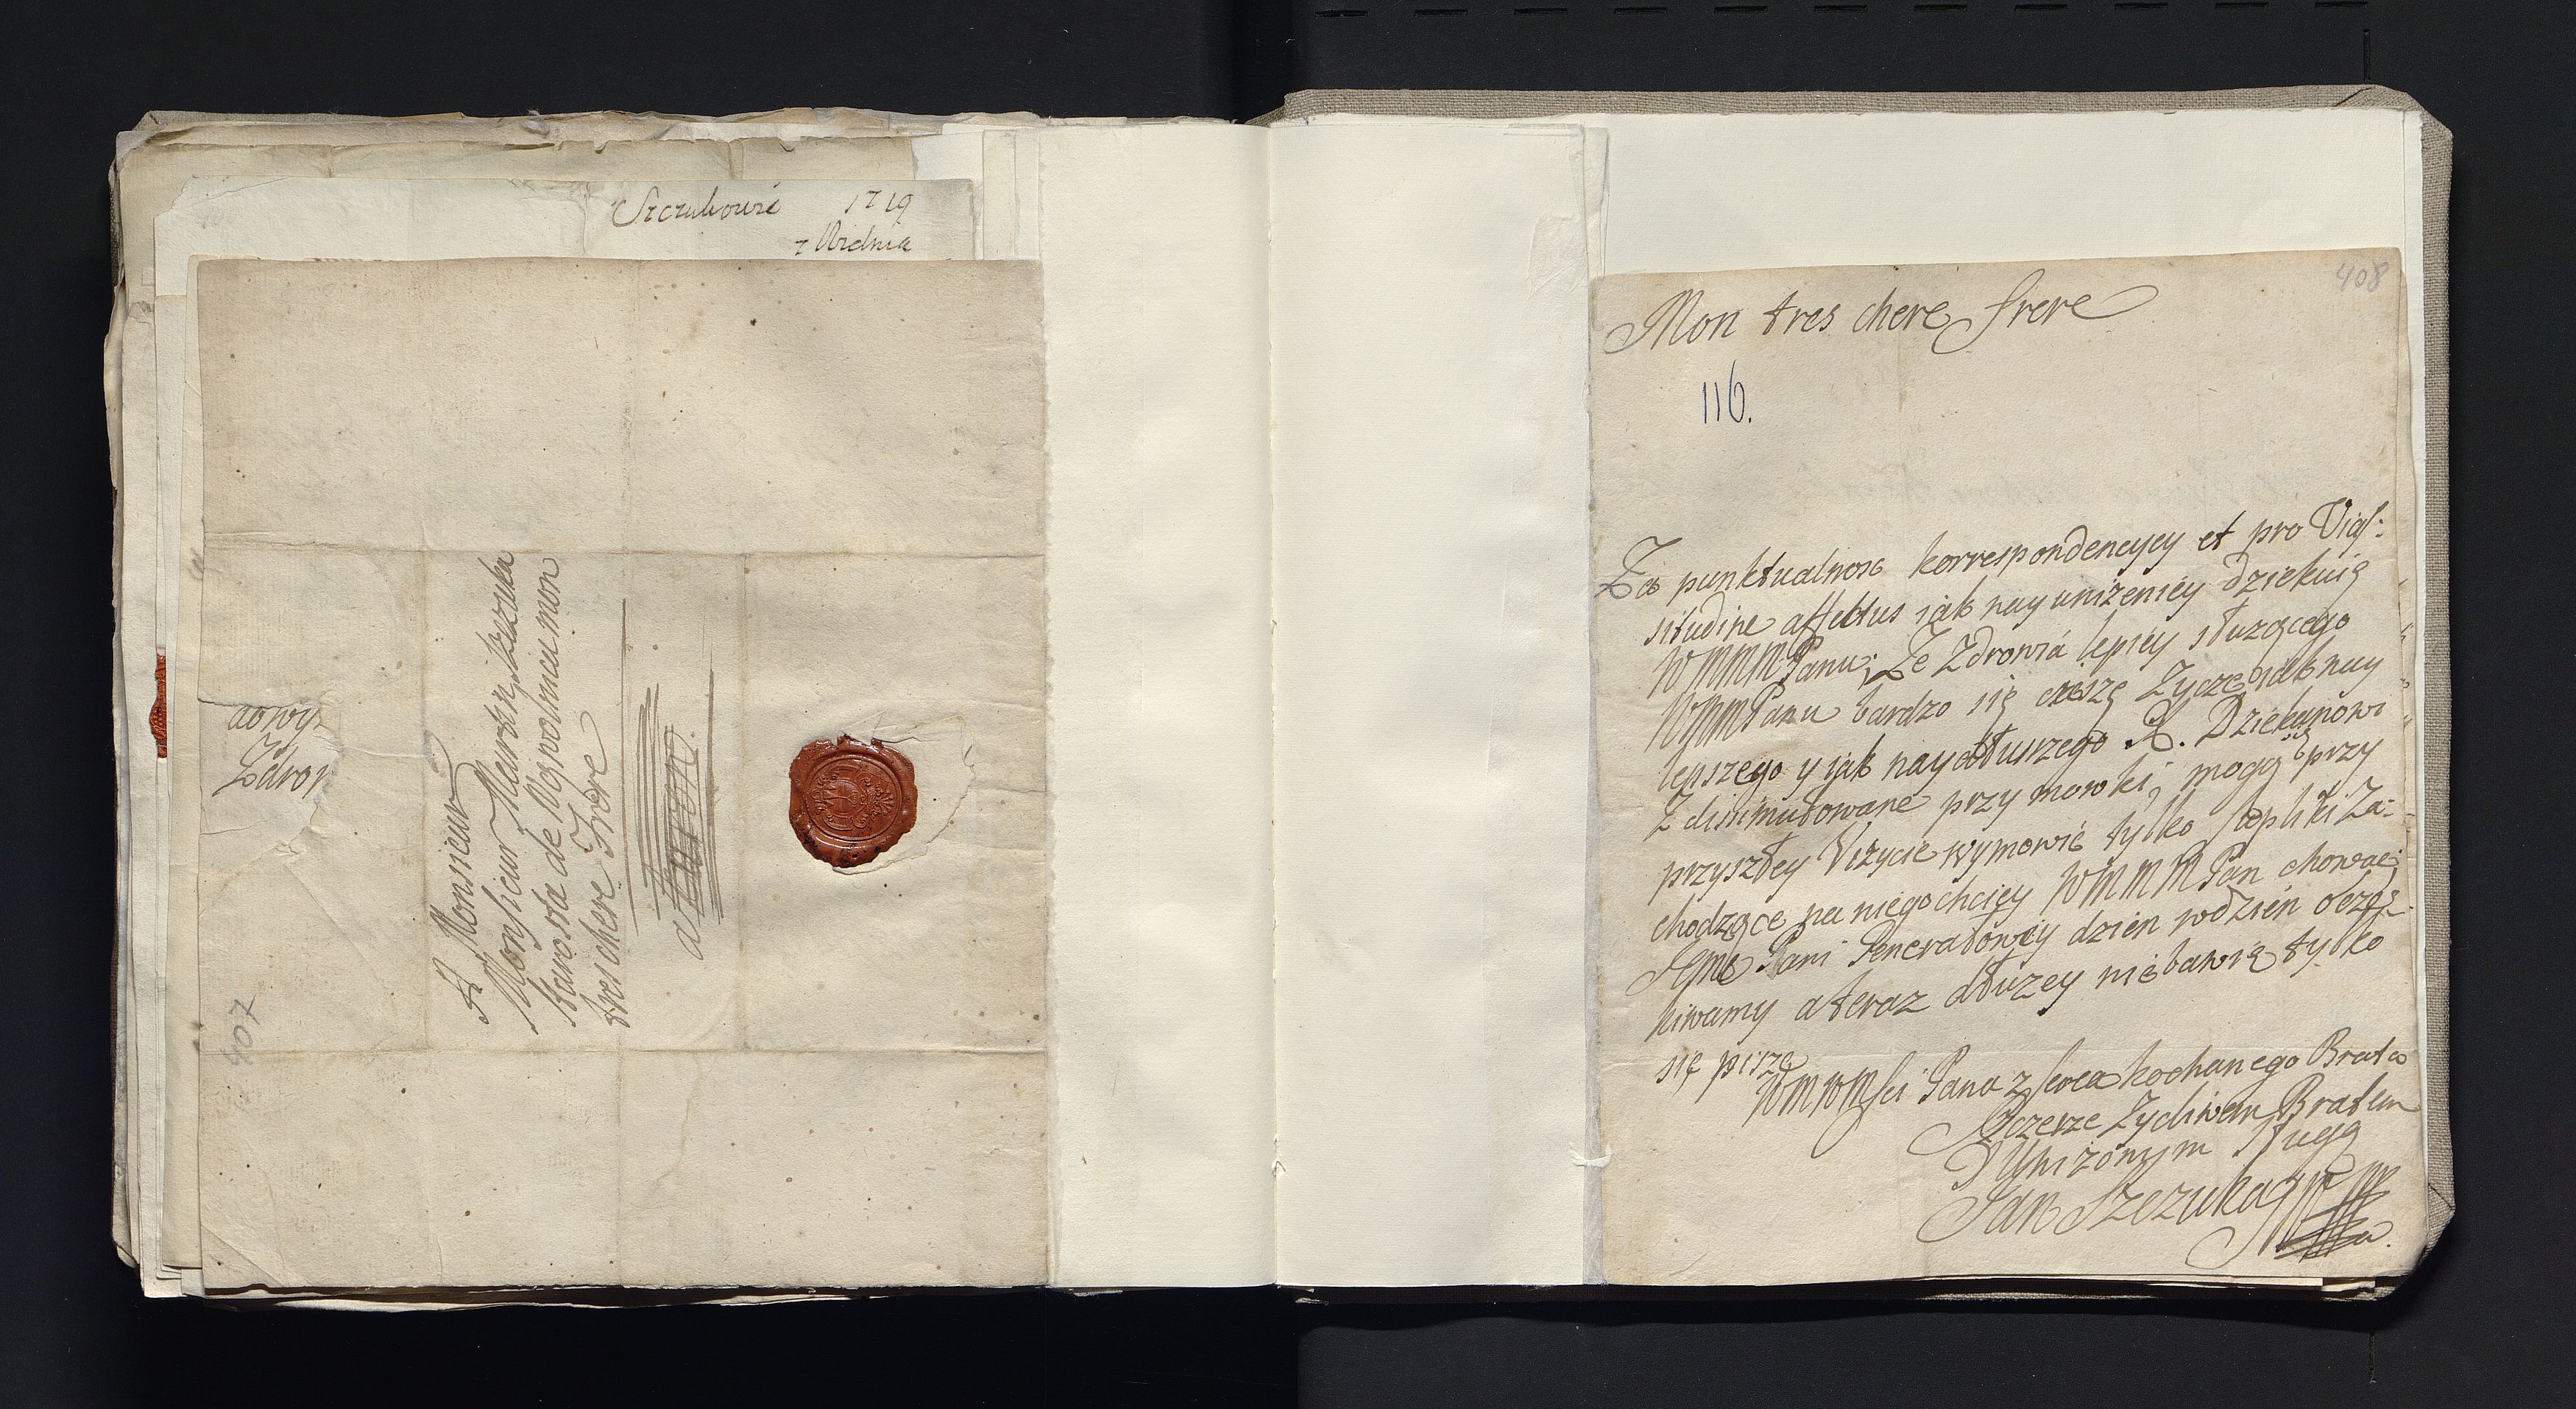 Szczukowie 1719
z Widnia
aowy
Zdrow
407
A Monsieur
Monsieur Martin Szczuka
Starosta de Wąwolnicu mon
tres chere Frere
a Turon.
408
Mon tres chere frere
116.
Za punktualnosc korrespondencyey et pro Vicis:
situdine affectus iak nay unizeniey dziekuię
WMMMPanu; Ze Zdrowiá lepiey słuzącego
WMMPanu bardzo się cieszę Zyczę iak nay
lepszego y iak naydłuszego X. Dziekanowi
Zdissimulowane przymowki, mogą bydz przy
przyszłey Vizycie wymowić tylko repliki Za:
chodzące na niego chciey WMMMPan chowac;
JeyMć Pani Generałowey dzien wdzień oczę:
kiwamy a teraz dłuzey nie bawię tylko
się piszę
WMWMSci Pana z serca kochanego Brata
Sczerze Zyczliwem Bratem
Y Unizonym sługą
Jan Szczuka